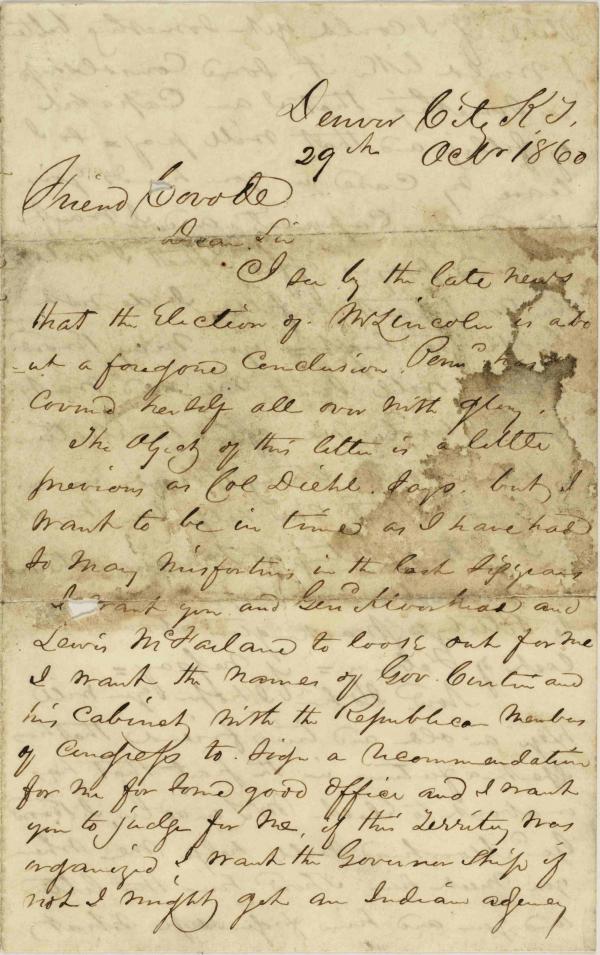 Denver City K. T.
29th Octbr 1860
Friend Covode
Dear Sir
I see by the late news
that the Election of Mr Lincoln is abo
-ut a foregone Conclusion. Penna has
Coverd herself all over with glory.
The Object of this letter is a little
previous as Col Diehl. Says. but I
want to be in time as I have had
So many misfortunes in the last Six years
I want you and Genl Moorhead and
Lewis McFarland to look out for me
I want the names of Gov. Curtin and
his Cabinet with the Republican Members
of Congress to. Sign a recommendation
for me for Some good office and I want
you to judge for me, if this Territory was
organized I want the Governor Ship if
not I might get an Indian agency